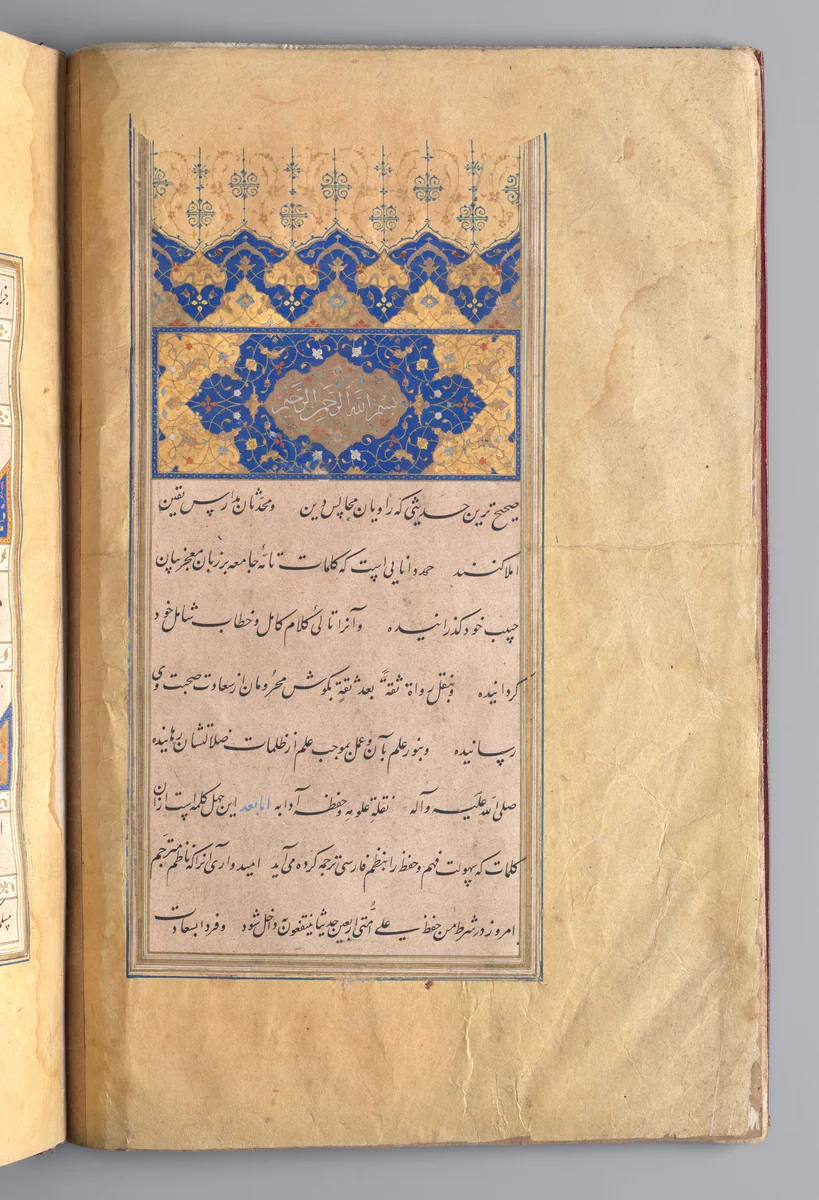 بسم الله الرحمن الرحیم
صحیح ترین حدیثی که راویان مجالس دین و محدثان مدارس یقین
املا کنند حمد دانایی است که کلمات تامّهٔ جامعه بر زبان معجز بیان
حبیب خود گذرانیده و آنرا تالیٔ کلام کامل و خطاب شامل خود
گردانیده و بنقل رواة ثقةً بعد ثقةٍ بگوش محرومان از سعادت صحبت وی
رسانیده و بنور علم بآن و عمل بموجب علم از ظلمات ضلالتشان رهانیده
صلی الله علیه و آله نقلة علومه و حفظة آدابه اما بعد این چهل کلمه است ازان
کلمات که سهولت فهم و حفظ را بنظم فارسی ترجمه کرده می آید امیدواری آنرا که ناظم مترجم
امروز در شرط من حفظ علی اُمّتی اربعین حدیثا ینتفعون به داخل شود و فردا بسعادت